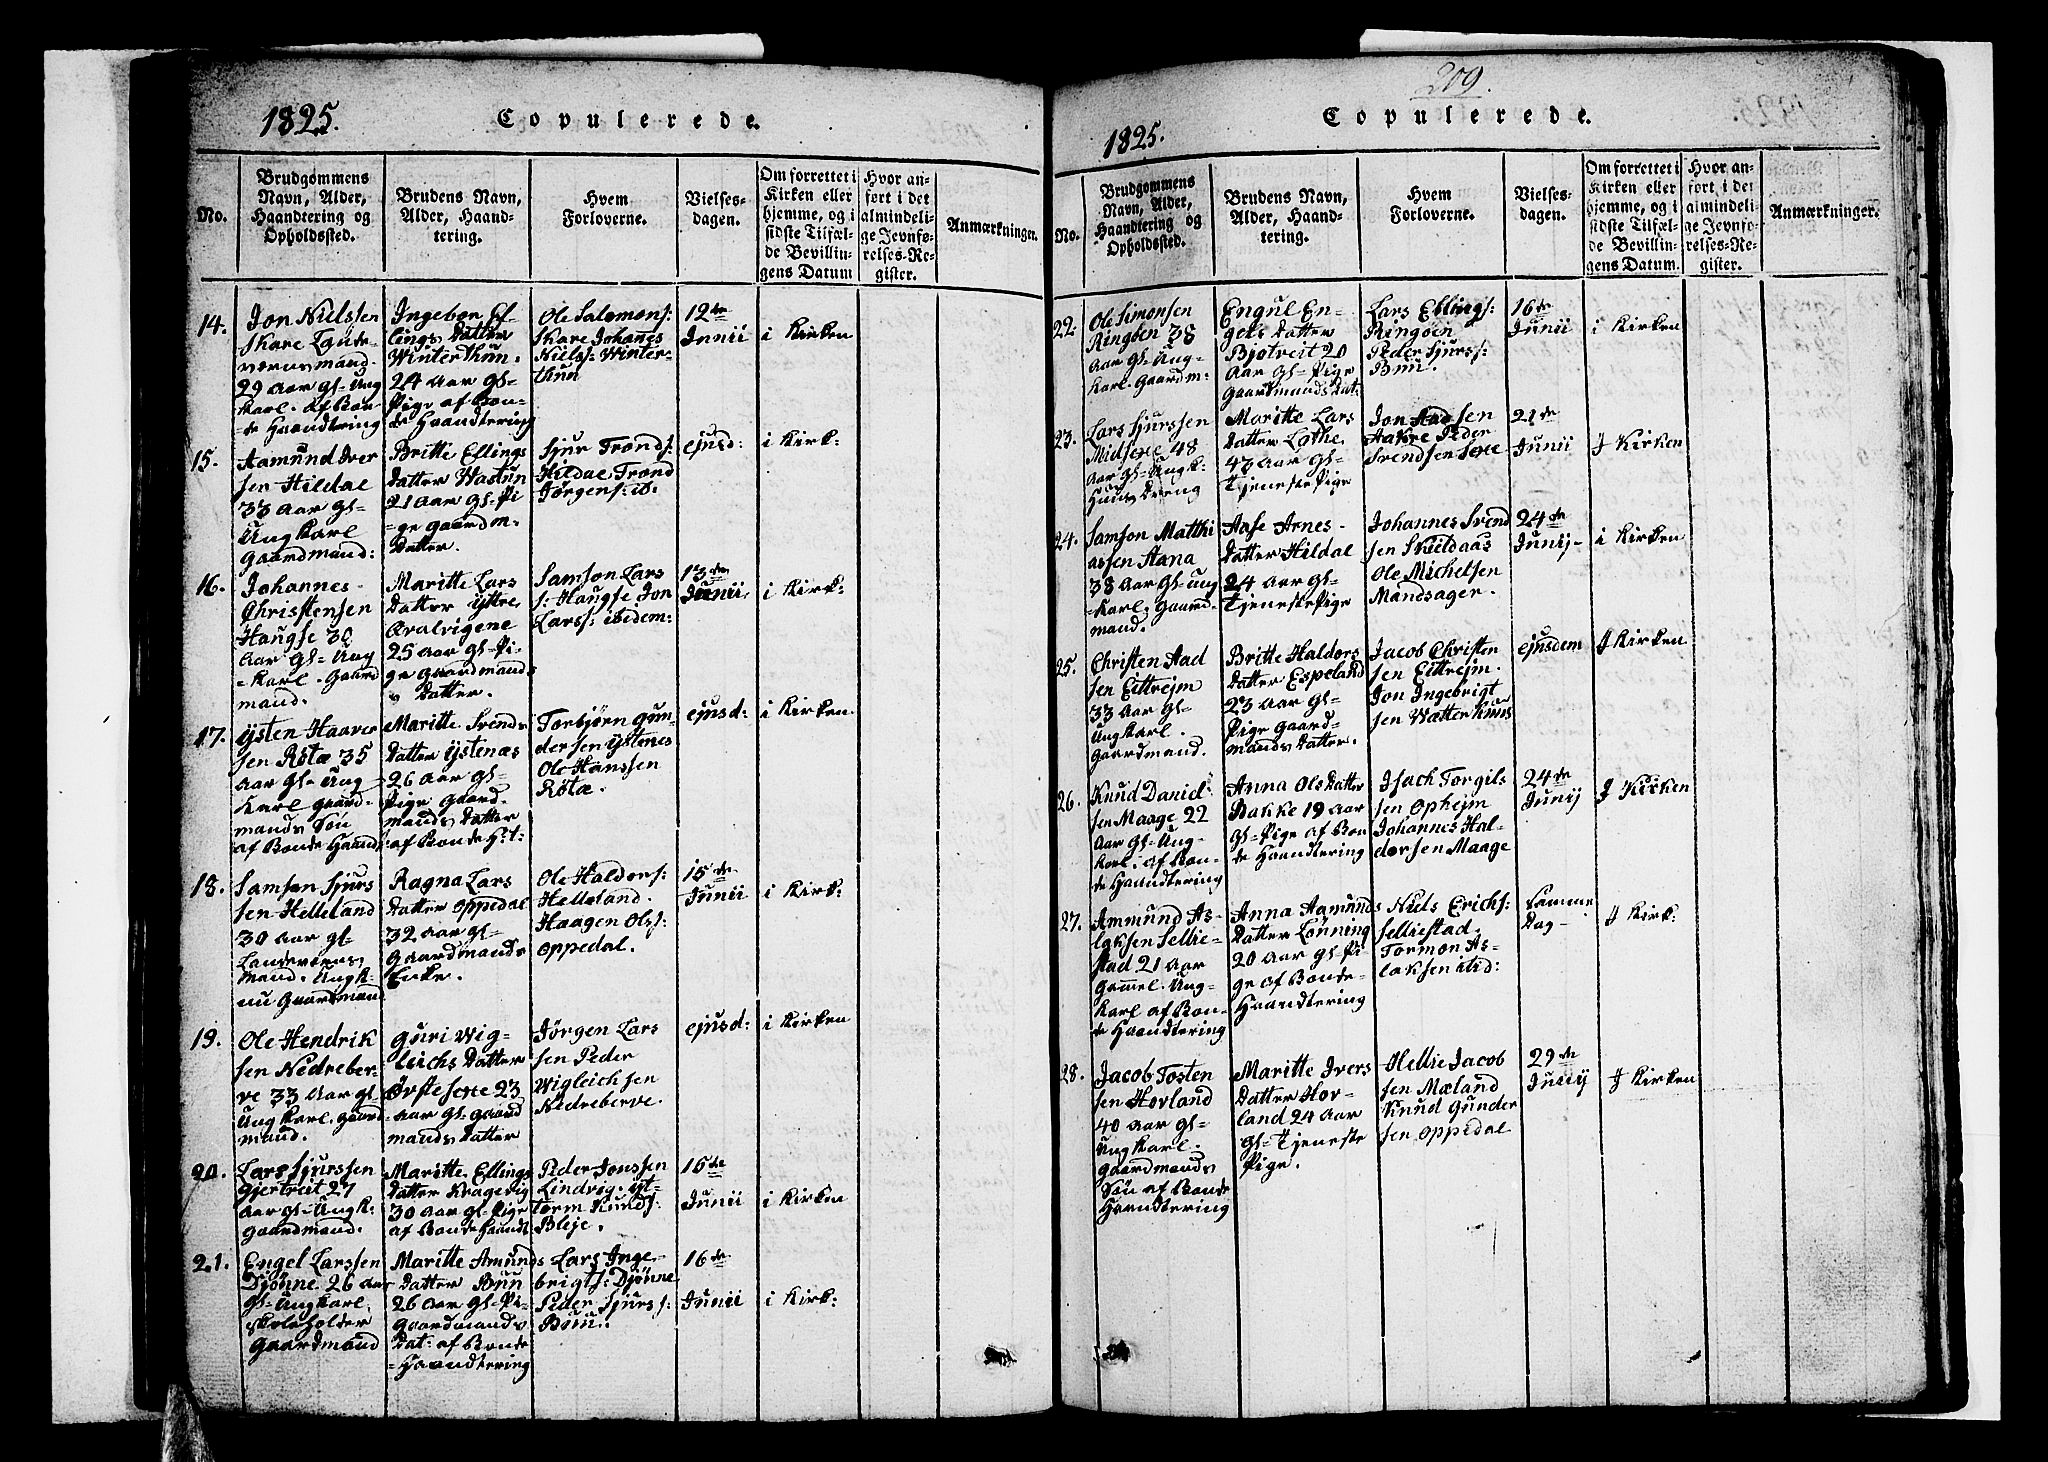 1825.
Copulerede.
No.
Brudgommens
Navn, Alder,
Haandtering og
Opholdssted.
Brudens Navn,
Alder, Haand-
tering.
Hvem
Forloverne.
Vielses-
dagen.
Om forrettet i
Kirken eller
hjemme, og i
sidste Tilfæl-
de Bevillin-
gens Datum
Hvor an-
ført i det
almindeli-
ge Jevnfø-
relses-Re-
gister.
Anmærkninger.
14.
Jon Nielssen
Skare Lande-
verns mand.
29 Aar Gl- Ung
Karl. af Bon-
de Haandtering
Ingebor El-
lings Datter
Winterthun.
24 Aar Gl-
Pige af Bon-
de Haandtering
Ole Salomons:
Skare Johannes
Niels: Winter-
thun
12te
Junii
i Kirken
15.
Aamund Iver
sen Hildal
33 Aar Gl-
Ung Karl
Gaardmand:
Britte Ellings
Datter Wastun
21 Aar Gl- Pi
-ge Gaardm.
Datter.
Sjur Tronds:
Hildal Trond
Jørgens: ib:
ejusd:
i Kirk:
16.
Johannes
Christensen
Haugse 30
Aar Gl- Ung
-Karl. Gaard
mand.
Maritte Lars
Datter Yttre
25 Aar Gl- Pi-
ge Gaardmands
Datter.
Samson Lars
s: Haugse Jon
Larss: ibidem:
13de
Junii,
i Kirk:
17.
Ysten Haaver
sen Røtæ 35
Aar Gl- Ung
Karl Gaard-
mands Søn
af Bonde Haand:
Maritte Svends
Datter Ystenæs
26 Aar Gl-
Pige Gaard-
mands Datter
af Bonde H:t:
Torbjørn Gun-
dersen Ystenes
Ole Hanssen
Røtæ.
ejusd:
i Kirken.
18.
Samson Sjurs
sen Helleland
30 Aar Gl-
Landeverns
mand. Ungk-
nu Gaardmand
Ragna Lars
Datter Oppedal
32 Aar Gl-
Gaardmands
Enke.
Ole Haldors:
Helleland.
Haagen Olss:
Oppedal.
15de
Junii
i Kirk:
19.
Ole Hendrik
sen Nedreber-
ve 33 Aar Gl
Ung Karl. Gaard
mand.
Guri Wig-
leichs Datter
Øvstesexe 23
-Aar Gl- Gaard
mands Datter
Jørgen Lars
sen Peder
Wigleichsen
Nedreberve.
ejusd:
i Kirken
20.
Lars Sjurssen
Gjertveit 27
Aar Gl- Ung K:
Gaardmand.
Maritte Ellings
Datter Kragevig
30 Aar Gl- Pige
af Bonde Haandt
Peder Jonssen
Lindvig. Gut-
torm Knuds:
Bleje.
16de
Junii
i Kirken
21.
Engel Larssen
Djønne 26 Aar
Gl- Ung Karl.
Skoleholder
Gaardmand
Maritte Amunds
Datter Buu
26 Aar Gl- Pi-
Gaardmands
Dat: af Bonde
-Haandtering
Lars Inge-
brigts: Djønne
Peder Sjurss:
Buu.
16de
Junii
i Kirk:
209.
1825.
Copulerede.
No.
Brudgommens
Navn, Alder,
Haandtering og
Opholdssted.
Brudens Navn,
Alder, Haand-
tering.
Hvem
Forloverne.
Vielses-
dagen.
Om forrettet i
Kirken eller
hjemme, og i
sidste Tilfæl-
de Bevillin-
gens Datum.
Hvor an-
ført i det
almindeli-
ge Jevnfø-
relses-Re-
gister.
Anmærkninger.
22.
Ole Simonsen
Ringøen 38
Aar Gl- Ung-
Karl. Gaardm:
Engul En-
gels Datter
Bjotveit 20
Aar Gl- Pige
Gaardmands Dat:
Lars Ellings:
Ringøen
Peder Sjurss:
Buu.
16de
Junii
i Kirken
23.
Lars Sjurssen
Midsexe 48
Aar Gl- Ung K:
Huus Dreng
Maritte Lars
Datter Lothe
43 Aar Gl-
Tjeneste Pige
Jon Aadsen
Aakre Peder
Svendsen Sexe
21de
Junii
J Kirken
24.
Samson Matthi
assen Aana
38 Aar Gl- Ung
-Karl. Gaard-
mand.
Aase Arnes-
Datter Hildal
24 Aar Gl-
Tjeneste Pige
Johannes Svend
sen Skieldaas
Ole Michelsen
Mandsager.
24de
Junij-
i Kirken
25.
Christen Aad
sen Eittrejm
33 Aar Gl-
Ung Karl.
Gaardmand.
Britte Haldors
Datter Espeland
23 Aar Gl-
Pige Gaard-
mands Datter.
Jacob Christen
sen Eittrejm.
Jon Ingebrigt
sen Wætterhuus
ejusdem
J Kirken
26.
Knud Daniel:
sen Maage 22
Aar Gl- Ung-
Karl. af Bon-
de Haandtering
Anna Ols Datter
Bakke 19 Aar
Gl- Pige af Bon
de Haandtering
Isach Torgils
sen Ophejm
Johannes Hal-
dorsen Maage
24de
Junij
J Kirken
27.
Ammund As-
laksen Sellie-
stad 21 Aar
Gammel. Ung-
Karl af Bon-
de Haandtering
Anna Aamunds
Datter Lønning
20 Aar Gl- Pi-
ge af Bonde-
Haandtering
Niels Erichs:
Selliestad.
Tormon As-
laksen ibid:
Samme
Dag-
J Kirk:
28.
Jacob Tosten
sen Hovland
40 Aar Gl-
Ung Karl.
Gaardmands
Søn af Bonde
Haandtering
Maritte Ivers
Datter Hov-
land 24 Aar
Gl- Tjeneste
Pige.
Hellie Jacob
sen Mæland
Knud Gunder
sen Oppedal
29de
Junij
J Kirken